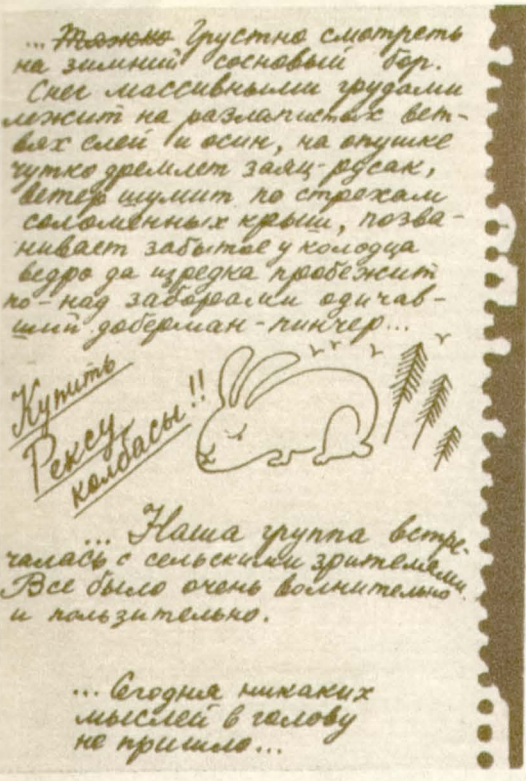 ... ~~Тяжко~~ Грустно смотреть
на зимний сосновый бор.
Снег массивными грудами
лежит на разлапистых вет-
вях елей и осин, на опушке
чутко дремлет заяц-русак,
ветер шумит по стрехам
соломенных крыш, позва-
нивает забытое у колодца
ведро да изредка пробежит
по-над заборами одичав-
ший доберман-пинчер...
Купить
Рексу
колбасы!!
... Наша группа встре-
чалась с сельскими зрителями.
Все было очень волнительно
и пользительно.
... Сегодня никаких
мыслей в голову
не пришло...